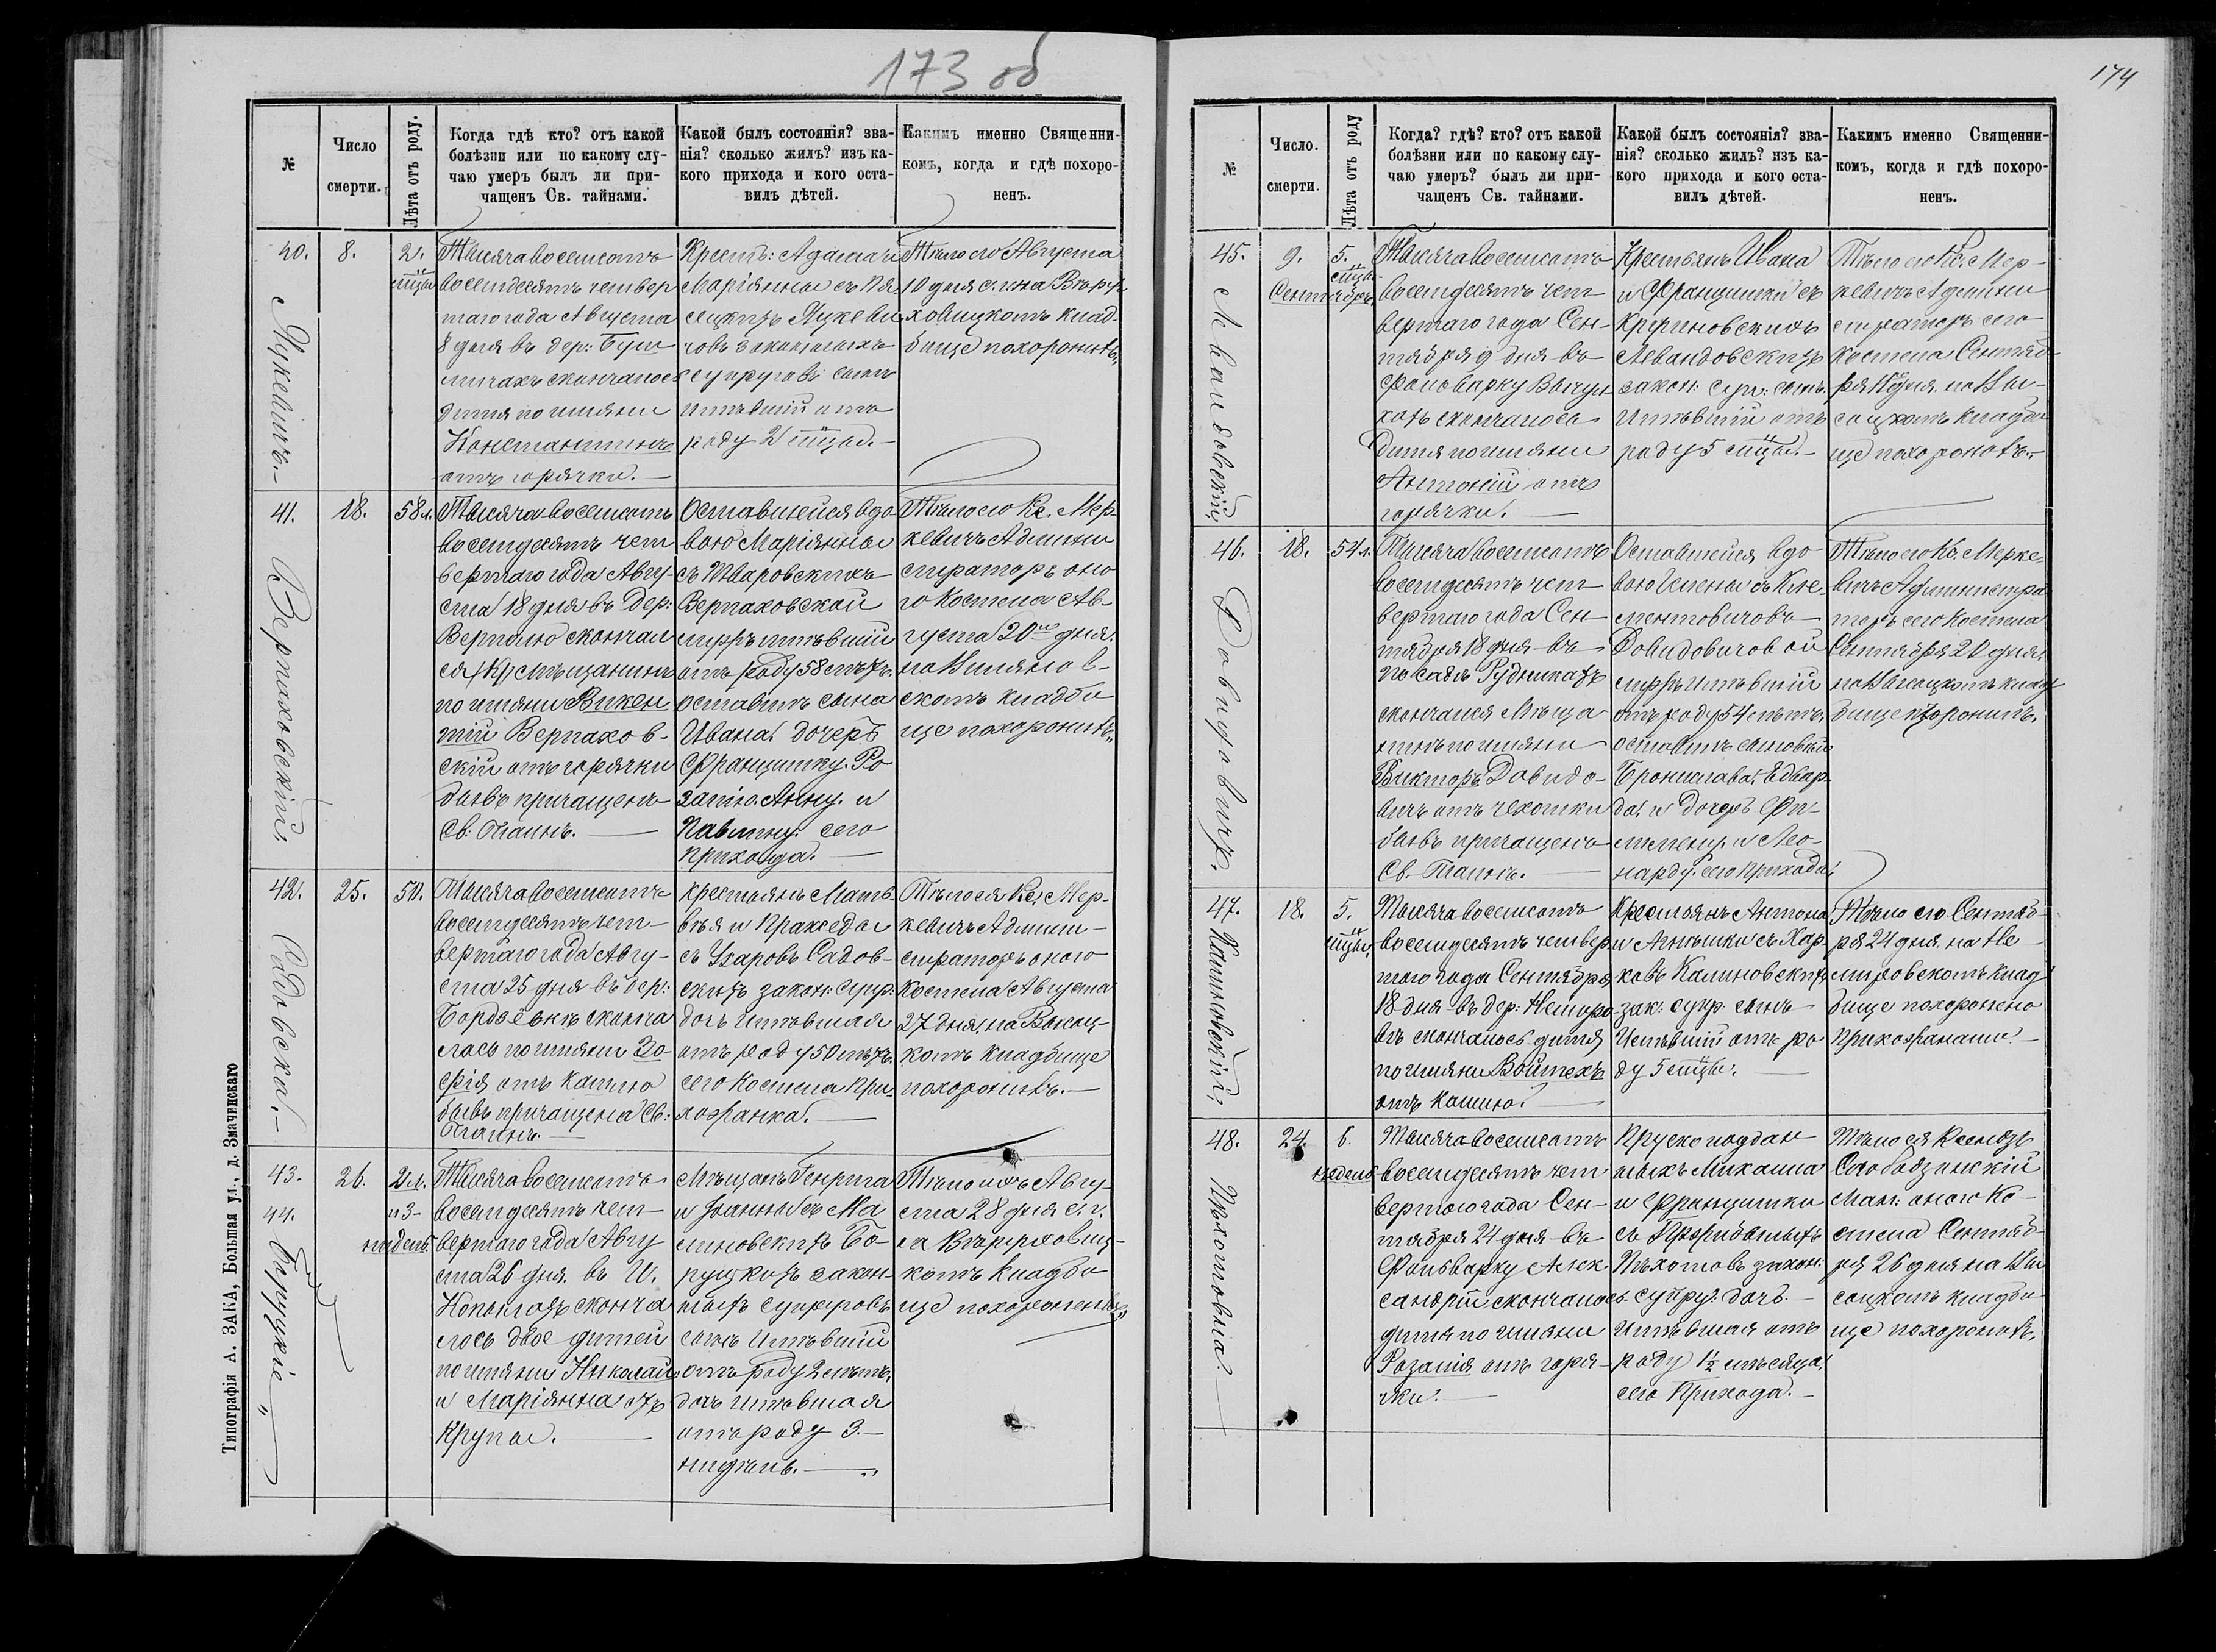 173 об
№
Число
смерти.
Лѣта отъ роду.
Когда гдѣ кто? отъ какой
болѣзни или по какому слу-
чаю умеръ былъ ли при-
чащенъ Св. тайнами.
Какой былъ состоянія? зва-
нія? сколько жилъ? изъ ка-
кого прихода и кого оста-
вилъ дѣтей.
Какимъ именно Священни-
комъ, когда и гдѣ похоро-
ненъ.
40.
Яцкевичъ.
8.
2.
Тысяча восемсотъ
восемдесятъ четвер
таго года Августа
8 дня въ дер:
скончалось
дитя по имяни
Константинъ
отъ горячки.
Крест: Адама и
Маріянны съ
Яцкеви
човъ законныхъ
супруговъ сынъ
имѣвшій отъ
роду 2
Тѣло его Августа
10 дня с. г. на
ховицкомъ клад-
бище похоронитъ
41.
Верпаховскій
18.
58 л.
Тысяча восемсотъ
восемдесятъ чет
вертаго года Авгу-
ста 18 дня въ дер:
скончал
ся мѣщанинъ
по имяни Викен
тій Верпахов-
скій отъ горячки
бывъ причащенъ
Св: Таинъ.
Оставшейся вдо
вою Маріянны
съ Уваровскихъ
Верпаховской
имѣвшій
отъ роду 58 лѣтъ.
оставитъ сына
Ивана, дочерѣ
Францишку, Ро
залію, Анну и
Павлину сего
прихода.
Тѣло его Кс. Мер-
кевичъ Админи
страторъ оно
го Костела Ав-
густа 20 дня
на
скомъ кладби
ще похоронитъ
42.
Садовска.
25.
50.
Тысяча восемсотъ
восемдесятъ чет-
вертаго года Авгу-
ста 25 дня въ дер:
сконча
лась по имяни Зо-
фія отъ кашлю
бывъ причащена Св:
Таинъ.
Крестьянъ Матѣ-
вѣя и Пракседы
съ Садов-
скихъ закон: супр:
дочъ имѣвшая
отъ роду 50 лѣтъ
сего Костела При-
хожанка.
Тѣло ея Кс. Мер-
кевичъ Админи-
страторъ оного
Костела Августа
27 дня, на Высоц-
комъ кладбище
похоронитъ.
43.
44.
Баруцкіе
26.
2 л.
и 3
недель.
Тысяча восемсотъ
восемдесятъ чет-
вертаго года Авгу
ста 26 дня. въ
сконча
лось двое дитей
по имяни Николай
и Маріянна отъ
Крупы.
Мѣщанъ Генриха
и Іоанны съ Ма
линовскихъ Ба-
руцкихъ закон-
ныхъ супруговъ
сынъ имѣвшій
отъ роду 2 лѣтъ,
дочъ имѣвшая
отъ роду 3.
недѣль.
Тѣло ихъ Авгу-
ста 28 дня с. г.
на
комъ кладби
ще похоронены
Типографія А. ЗАКА, Большая ул., д. Змачинскаго
174
№
Число.
смерти.
Лѣта отъ роду
Когда? гдѣ? кто? отъ какой
болѣзни или по какому слу-
чаю умеръ? былъ ли при-
чащенъ Св. тайнами.
Какой былъ состоянія? зва-
нія? сколько жилъ? изъ ка-
кого прихода и кого оста-
вилъ дѣтей.
Какимъ именно Священни-
комъ, когда и гдѣ похоро-
ненъ.
45.
Левандовскій
9.
Сентября.
5.
Тысяча восемсотъ
восемдесятъ чет-
вертаго года Сен-
тября 9 дня въ
фольварку
скончалось
дитя по имяни
Антоній отъ
горячки.
Крестьянъ Ивана
и Францишки съ
Левандовскихъ
закон: супр: сынъ
имѣвшій отъ
роду 5
Тѣло его Кс. Мер-
кевичъ Админи
страторъ сего
Костела Сентяб-
ря дня на Вы-
соцкомъ кладби
ще похоронитъ.
46.
Довидовичъ.
18.
54 л.
Тысяча восемсотъ
восемдесятъ чет-
вертаго года Сен-
тября 18 дня въ
посадѣ Рудникахъ
скончался Мѣща
нинъ по имяни
Викторъ Довидо-
вичъ отъ чехотки
бывъ причащенъ
Св. Таинъ.
Оставшейся вдо-
вою Елены съ Кле-
ментовичовъ
Довидовичовой
имѣвшій
отъ роду 54 лѣтъ,
оставитъ сыновей
Бронислава, Эдвар-
да, и дочерѣ Фи-
ломену и Лео-
нарду сего прихода.
Тѣло его Кс. Мерке-
вичъ Администра
торъ сего Костела
Сентября 20 дня
на Высоцкомъ клад
бище похоронитъ.
47.
Калиновскій,
18.
5.
Тысяча восемсотъ
восемдесятъ четвер
того года Сентября
18 дня въ дер:
скончалось дитя
по имяни Войтехъ
отъ кашлю.
Крестьянъ Антона
и Агнышки съ Хар-
ковъ Калиновскихъ
зак: супр: сынъ
имѣвшій отъ ро
ду 5
Тѣло его Сентяб-
ря 24 дня на Не-
мировскомъ клад
бище похоронено
Прихожанами.
48.
Пѣхотовна.
24.
6.
недель
Тысяча восемсотъ
восемдесятъ чет
вертого года Сен-
тября 24 дня въ
Фольварку Алек-
сандріи скончалось
дитя по имяни
Розалія отъ горя-
чки.
Прускоподдан
ныхъ Михаила
и Францишки
съ
Пѣхотовъ закон:
супру: дочъ.
имѣвшая отъ
роду 1½ мѣсяца,
сего Прихода.
Тѣло ея Ксендзъ
Слободзинскій
Ман: оного Ко-
стела Сентяб-
ря 26 дня на Вы
соцкомъ кладби
ще похоронитъ.